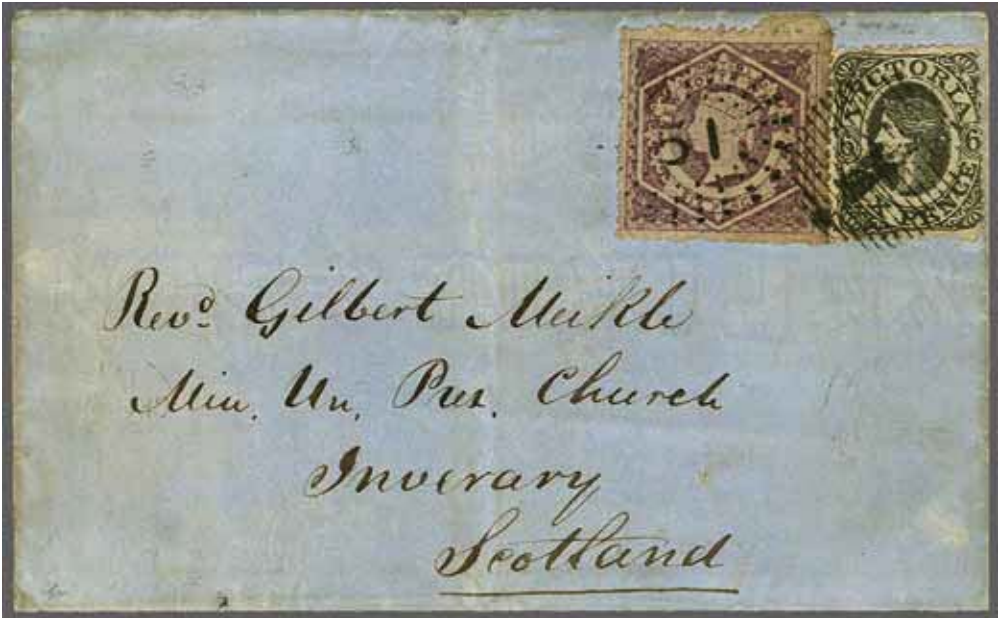 VICTORIA
6 6
PENCE
Revd. Gilbert Meikle
Min. Un. Pres. Church
Inverary
Scotland